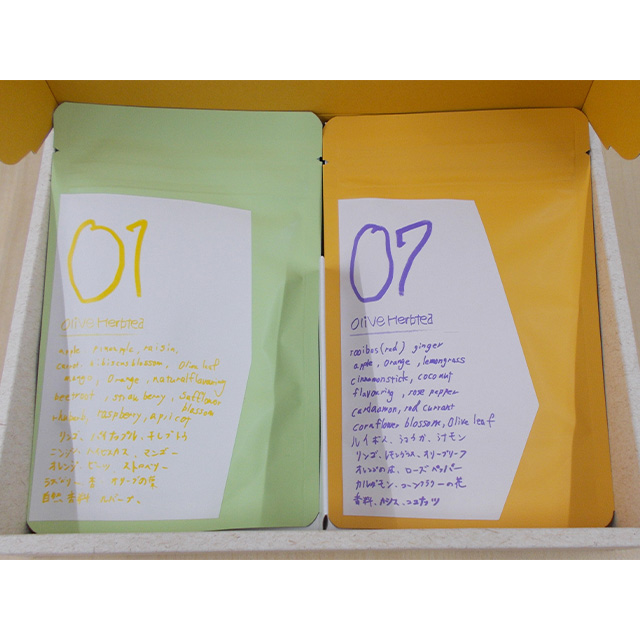 01
Olive Herbtea
apple, pineapple, raisin,
carrot, hibiscus blossom, Olive leaf
mango, Orange, natural flavouring
beetroot, strawberry, safflower
blossom
rhubarb, raspberry, apricot
リンゴ、パイナップル、干しブドウ
ニンジン、ハイビスカス、マンゴー
オレンジ、ビーツ、ストロベリー
オリーブの葉
香料、ルバーブ、
07
Olive Herbtea
rooibos (red) ginger
apple, orange, lemongrass
cinnamonstick, coconut
flavouring, rose pepper
cardamon, red currant
cornflower blossoms, Olive leaf
ルイボス、ショウガ、シナモン
リンゴ、レモングラス、オリーブリーフ
オレンジの皮、ローズペッパー
カルダモン、コーンフラワーの花
香料、カシス、ココナッツ